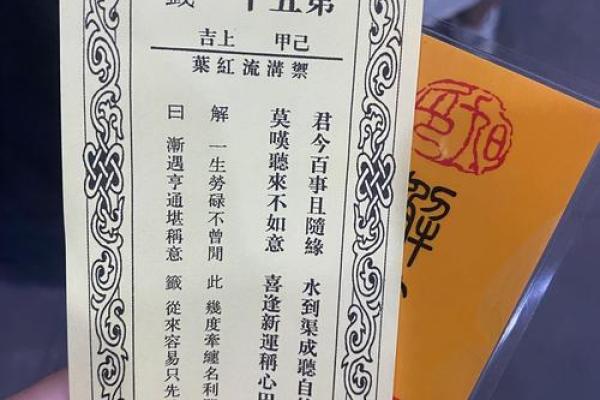 第五十
己甲 上吉
禦溝流紅葉
君今百事且隨緣 水到渠成聽自
莫嘆聽來不如意 喜逢新運稱心
解 一生勞碌不曾閒 此 幾度牽纏名利
曰 漸遇亨通堪稱意 籤 從來容易只先
解